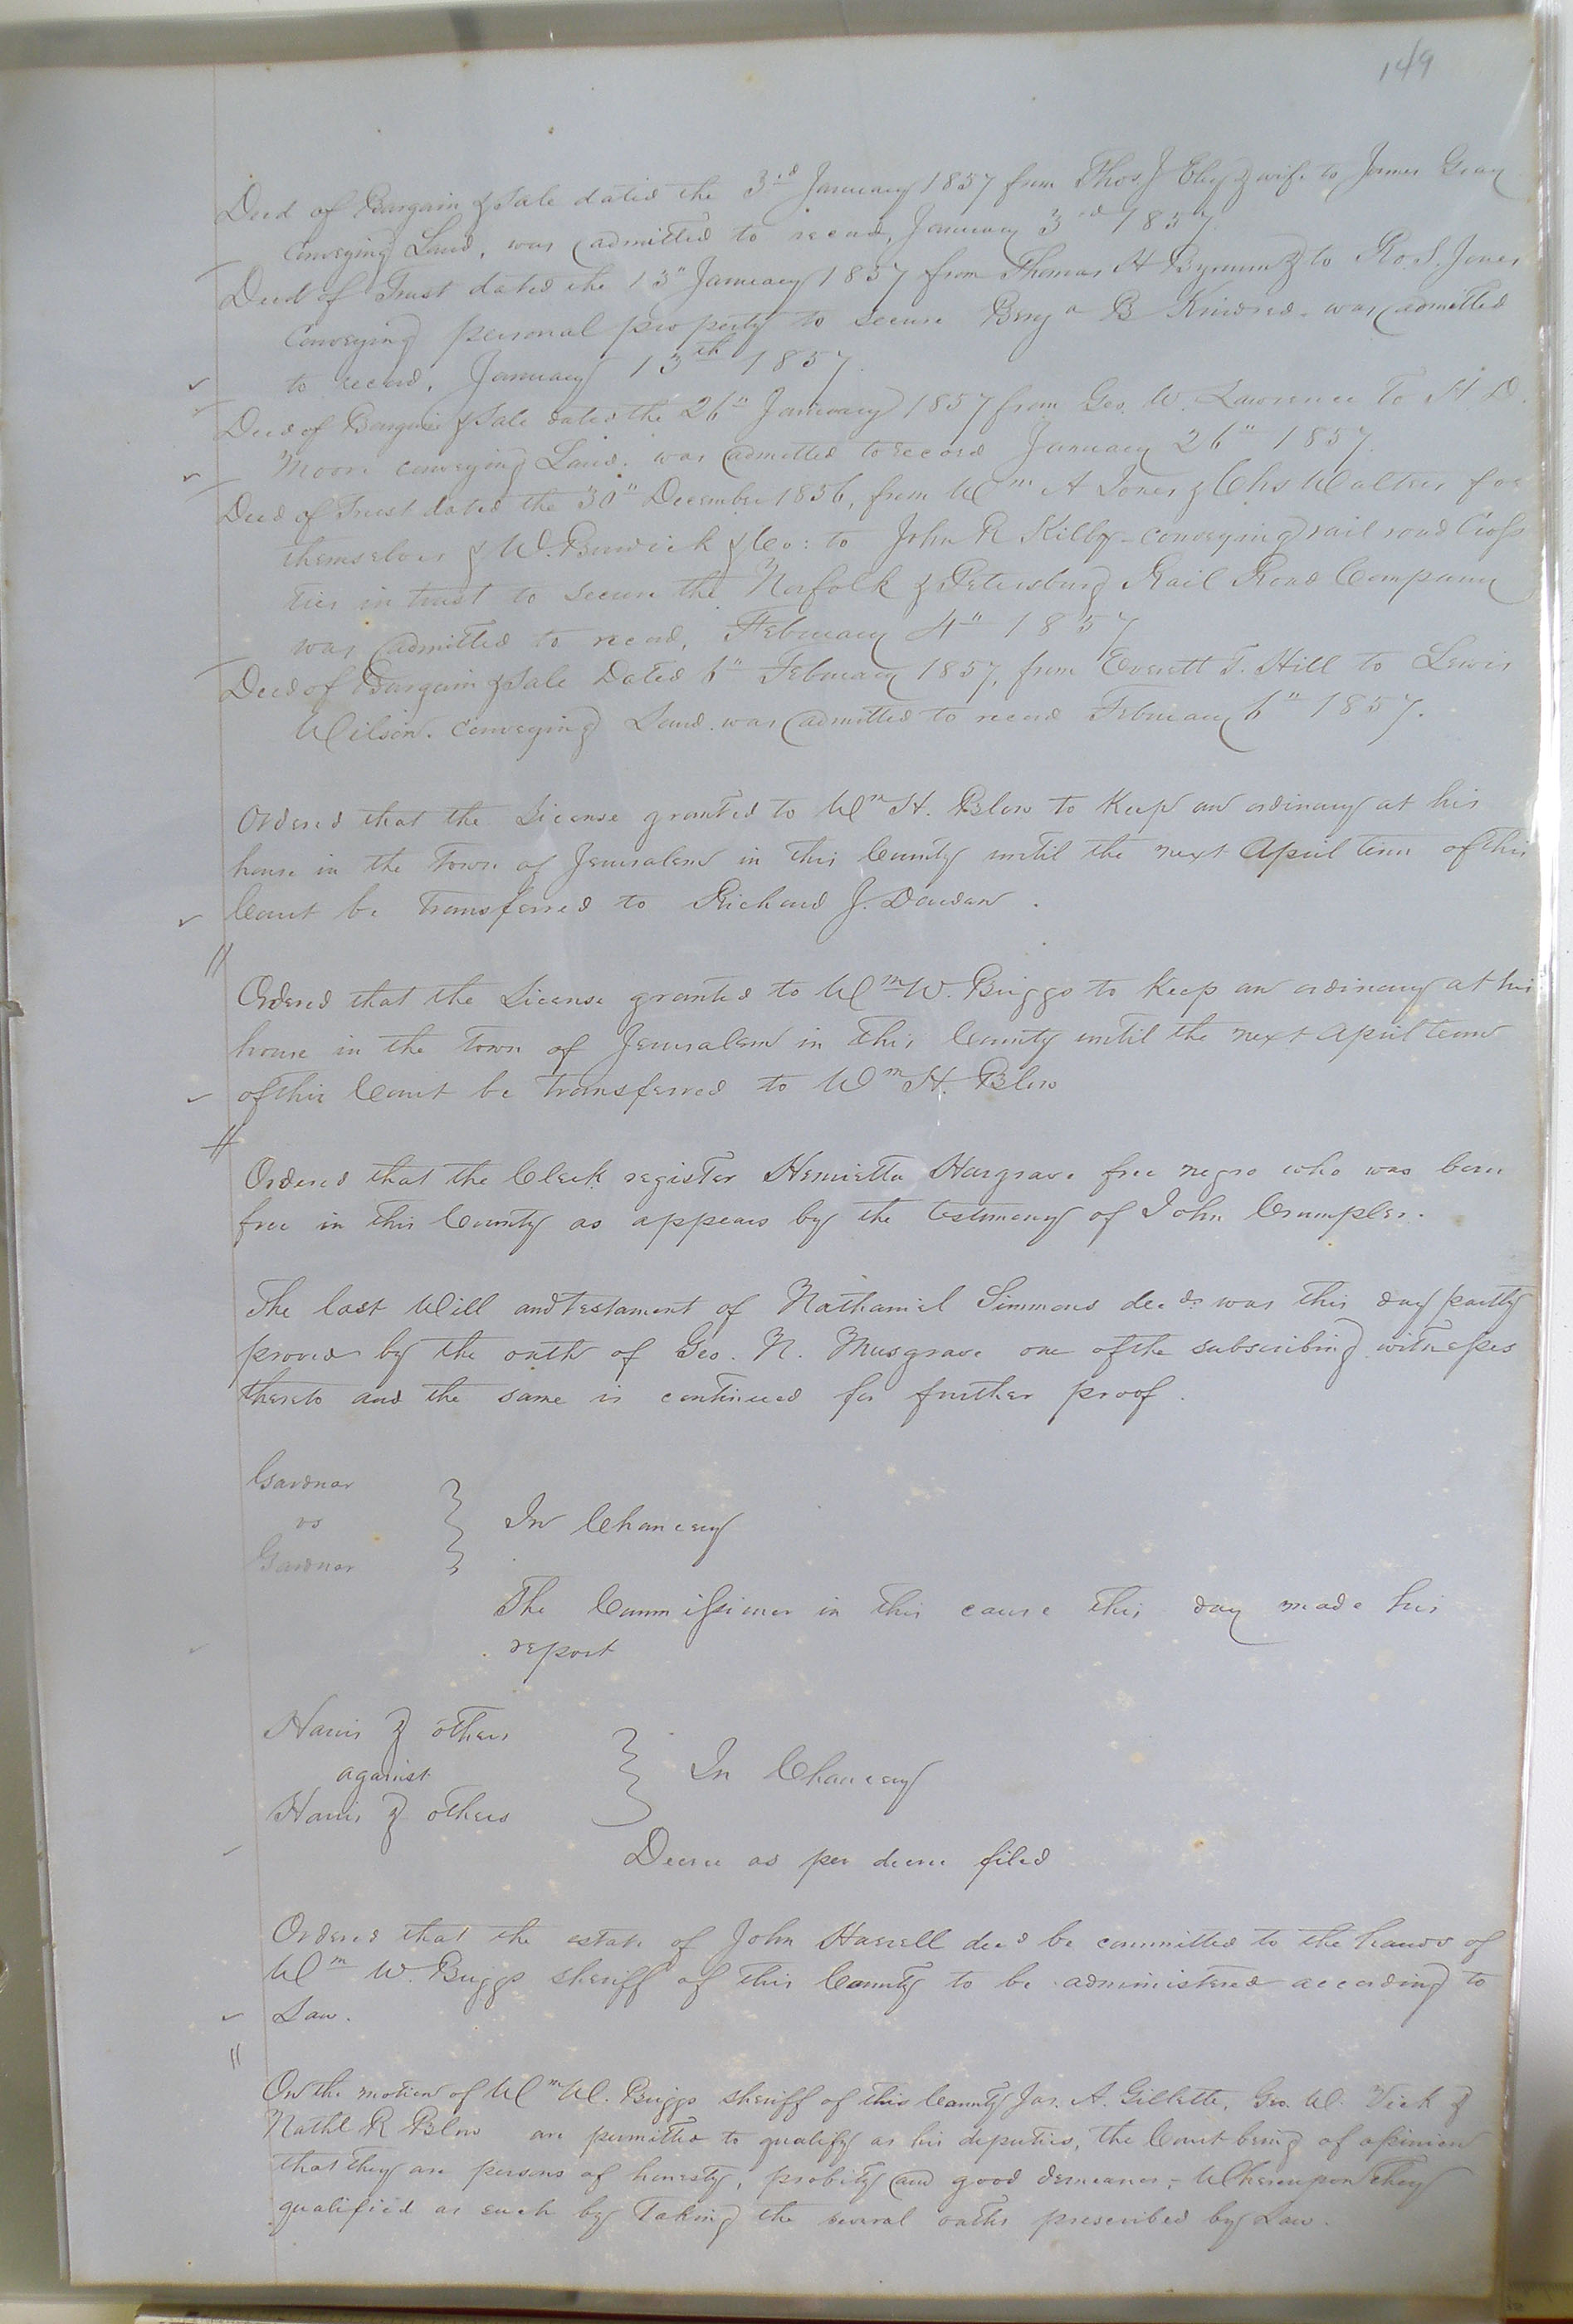 149
Deed of Bargain & Sale dated the 3rd January 1857 from Thos. J Eley & wife to James Gray
conveying Land, was admitted to record, January 3rd 1857.
Deed of Trust dated the 13" January 1857 from Thomas H Bynum & to Ro. S. Jones
conveying personal property to secure Benja B Kindred - was admitted
to record, January 13th 1857.
Deed of Bargain & Sale dated the 26" January 1857 from Geo. W. Lawrence to H D.
Moore conveying Land. was admitted to record January 26" 1857.
Deed of Trust dated the 30" December 1856, from Wm A Jones & Chs Walters for
themselves & W. & Co: to John R Kilby - conveying rail road Cross
ties in trust to secure the Norfolk & Petersburg Rail Road Company
was admitted to record, February 4" 1857
Deed of Bargain & Sale Dated 6" February 1857, from Everett T. Hill to Lewis
Wilson. conveying Land. was admitted to record February 6" 1857.
Ordered that the License granted to Wm H. Blow to Keep an ordinary at his
house in the Town of Jerusalem in this County until the next April term of this
Court be transferred to Richard J. Dardan.
Ordered that the License granted to Wm W. Briggs to Keep an ordinary at his
house in the Town of Jerusalem in this County until the next April term
of this Court be transferred to Wm H. Blow
Ordered that the Clerk register Henrietta Hargrave free negro who was born
free in this County as appears by the testimony of John Crumpler.
The last Will and testament of Nathaniel Simmons decd. was this day partly
proved by the oath of Geo. N. Musgrave one of the subscribing witnesses
thereto and the same is continued for further proof.
Gardner
vs
Gardner
In Chancery
The Commissioner in this cause this day made his
report
Harris & others
against
Harris & others
In Chancery
Decree as per decree filed
Ordered that the estate of John Harrell decd be committed to the hands of
Wm W. Briggs sheriff of this County to be administered according to
Law.
On the motion of Wm W. Briggs sheriff of this County Jas. A. Gillette, Geo. W. Vick &
Nathl R Blow are permitted to qualify as his deputies, the Court being of opinion
that they are persons of honesty, probity and good demeanor, - Whereupon they
qualified as such by Taking the several oaths prescribed by Law.